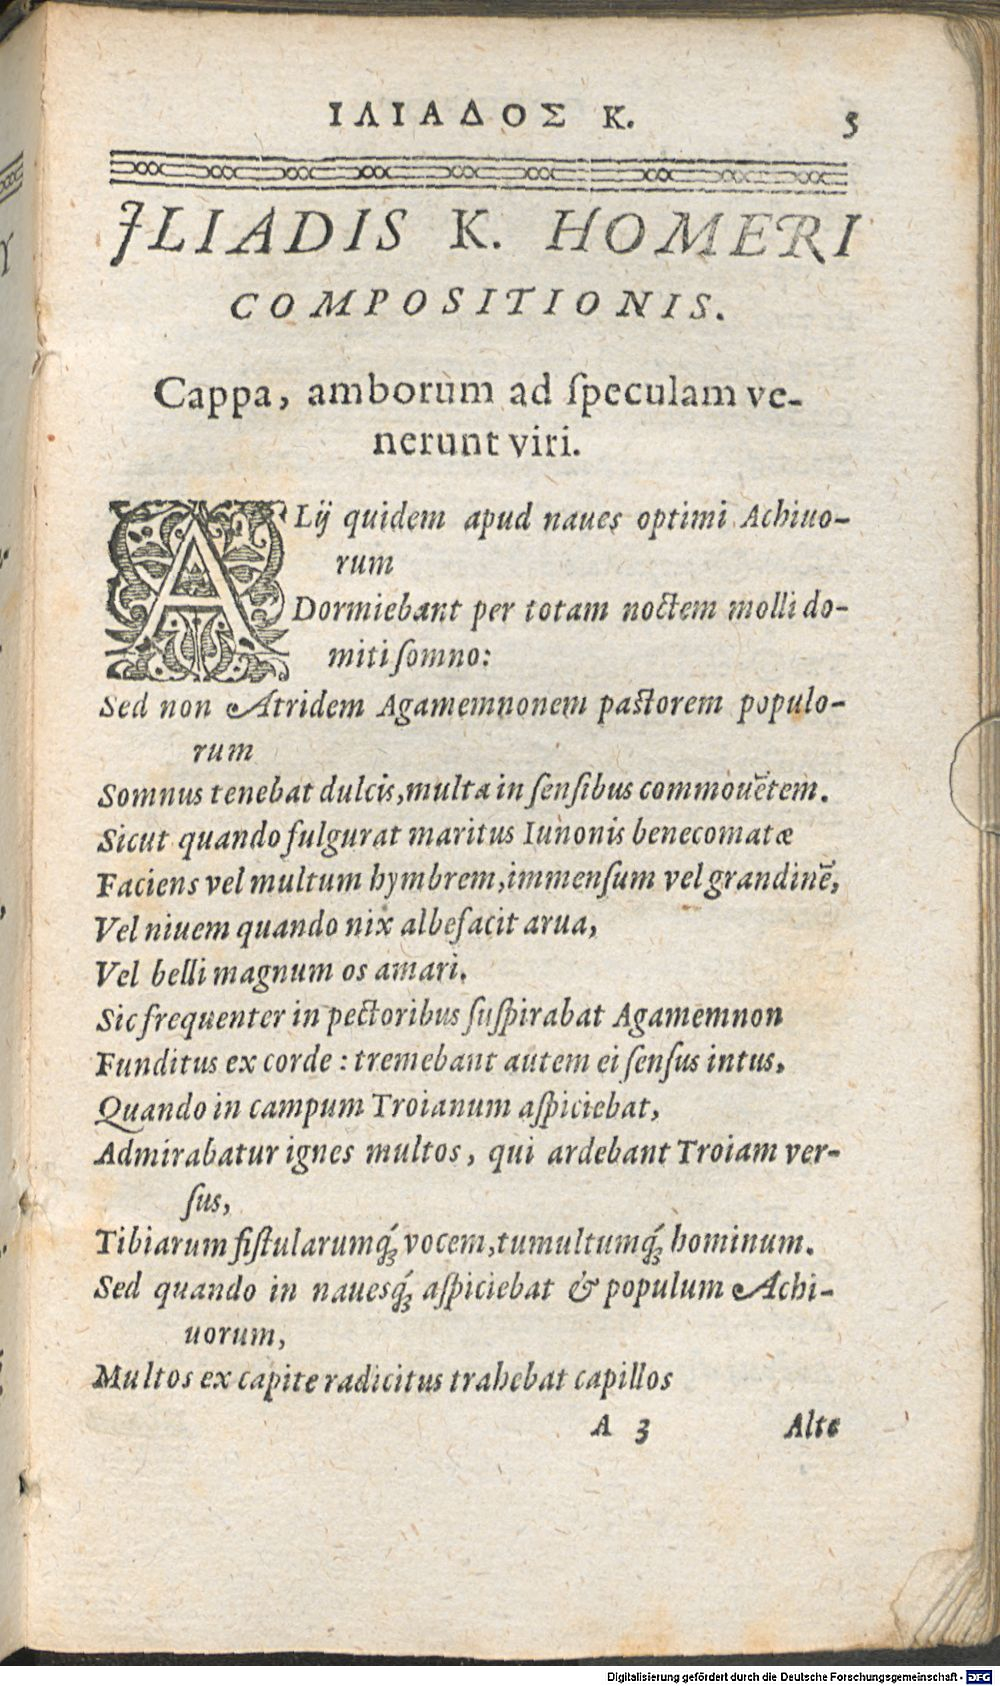 ΙΛΙΑΔΟΣ Κ. 5
ILIADIS K. HOMERI
COMPOSITIONIS.
Cappa, amborum ad ſpeculam ve-
nerunt viri.
ALij quidem apud naues optimi Achiuo-
rum
Dormiebant per totam noctem molli do-
miti ſomno:
Sed non Atridem Agamemnonem paſtorem populo-
rum
Somnus tenebat dulcis, multa in ſenſibus commouẽtem.
Sicut quando fulgurat maritus Iunonis benecomatæ
Faciens vel multum hymbrem, immenſum vel grandinẽ,
Vel niuem quando nix albefacit arua,
Vel belli magnum os amari.
Sic frequenter in pectoribus ſuſpirabat Agamemnon
Funditus ex corde: tremebant autem ei ſenſus intus.
Quando in campum Troianum aſpiciebat,
Admirabatur ignes multos, qui ardebant Troiam ver-
ſus,
Tibiarum fiſtularumq́ꝫ vocem, tumultumq́ꝫ hominum.
Sed quando in nauesq́ꝫ aſpiciebat & populum Achi-
uorum,
Multos ex capite radicitus trahebat capillos
A 3 Alte
Digitalisierung gefördert durch die Deutsche Forschungsgemeinschaft - DFG